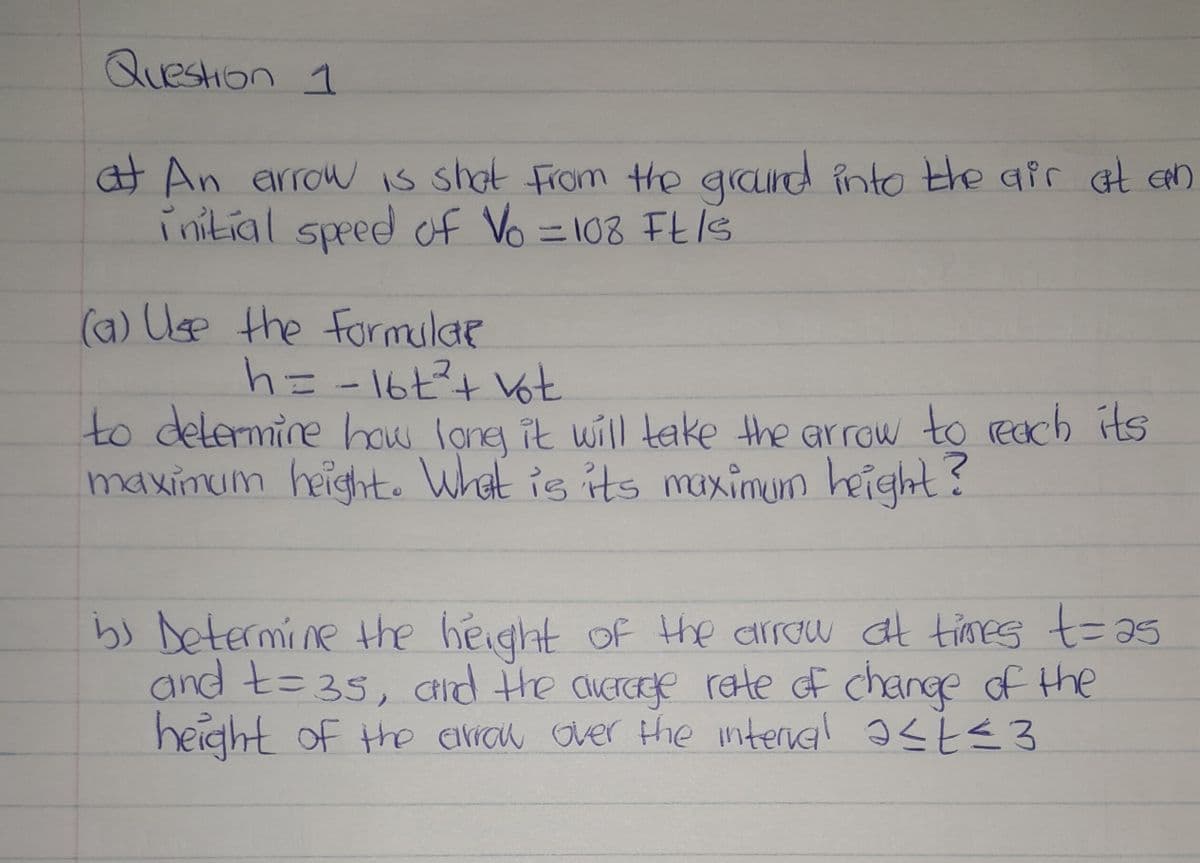 Question 1
at An arrow is shot from the ground into the air at an
initial speed of V₀ = 108 Ft/s
(a) Use the formulae
h = - 16t² + V₀t
to determine how long it will take the arrow to reach its
maximum height. What is its maximum height?
b) Determine the height of the arrow at times t = 2s
and t = 3s, and the average rate of change of the
height of the arrow over the interval 2 ≤ t ≤ 3